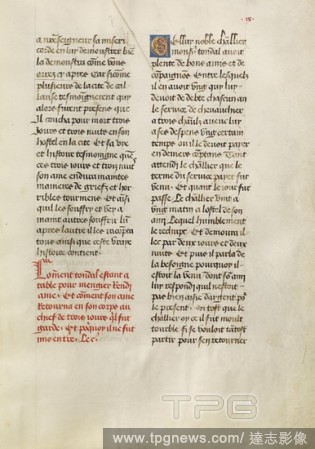 a nostre seigneur sa miseri
corde en luy demonstrer bien
la demonstra come vous
orrez cy apres Car si come
plusieurs de la cite de cal
lanse tesmoignerent qui
alors furent presens que
Il coucha pour mort trois
jours et trois nuits en son
hostel en la cite Et sa vie
et histoire tesmoigne que
ces trois jours et trois nuis
son ame endura maintes
manieres de griefz et hor
ribles tourmens Et ainsi
que les souffry et vey a
maint autres souffrir lun
apres lautre il les racompta
tous ainsi que ceste vraye
histoire contient
Coment tondal estant a
table pour mengier rendy
ame Et coment son ame
retourna en son corps au
chief de trois jours quil fut
garde Et pourquoy il ne fut
mis en terre
15
Cellui noble chevalier
monsr tondal avoit
plente de bons amis et de
compaignons Entre lesquelz
il en avoit ung qui luy
devoit de debte chascun an
le service de rechanchier
a trois chevaulx avecques luy
a ses despens ung certain
temps ou il le devoit paier
en deniers comptans Tondal
attendi le chevallier que le
terme du service paier fut
venu Et quant le jour fut
passe Le chevallier vint a
ung matin a lostel de son
amy Lequel humblement
le rechupt Et demoura il
lec par deux jours et deux
nuits Et puis il parla de
la besongne pourquoy il
estoit la venu dont son amy
luy respondi quil nestoit
pas bien aisie dargent pour
le present En tost que le
chevallier oy ce il fut moult
trouble si se vouloit tantost
partir pour sen retourner
TPG
www.tpgnews.com/達志影像